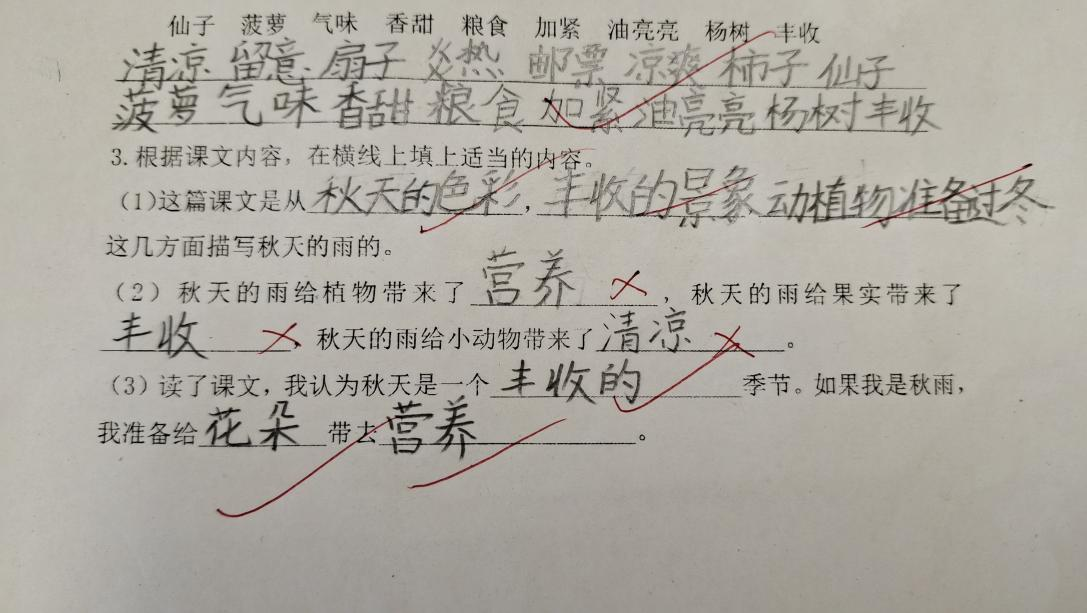 仙子 菠萝 气味 香甜 粮食 加紧 油亮亮 杨树 丰收
清凉 留意 扇子 炎热 邮票 凉爽 柿子 仙子
菠萝 气味 香甜 粮食 加紧 油亮亮 杨树 丰收
3.根据课文内容，在横线上填上适当的内容。
(1)这篇课文是从秋天的色彩，丰收的景象 动植物准备过冬
这几方面描写秋天的雨的。
（2）秋天的雨给植物带来了 营养 ，秋天的雨给果实带来了
丰收 ，秋天的雨给小动物带来了 清凉 。
（3）读了课文，我认为秋天是一个 丰收的 季节。如果我是秋雨，
我准备给 花朵 带去 营养 。